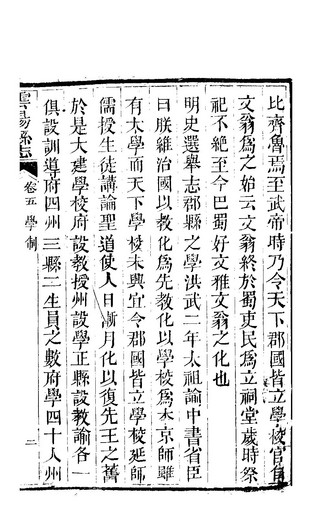 比齊魯焉至武帝時乃令天下郡國皆立學校官自
文翁爲之始云文翁終於蜀吏民爲立祠堂歲時祭
祀不絕至今巴蜀好文雅文翁之化也
明史選舉志郡縣之學洪武二年太祖諭中書省臣
曰朕維治國以教化爲先教化以學校爲本京師雖
有太學而天下學校未興宜令郡國皆立學校延師
儒授生徒講論聖道使人日漸月化以復先王之舊
於是大建學校府設教授州設學正縣設教諭各一
俱設訓導府四州三縣二生員之數府學四十人州
雲陽縣志
卷五 學制
二